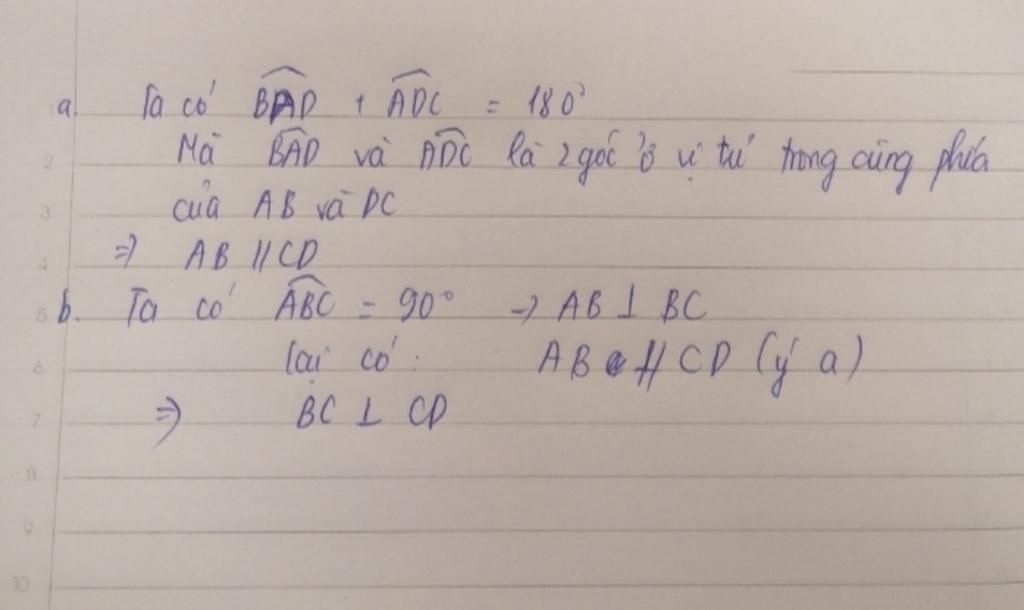 a. Ta có BAD + ADC = 180°
2 Mà BAD và ADC là 2 góc ở vị trí trong cùng phía
3 của AB và DC
4 => AB // CD
5 b. Ta có ABC = 90° -> AB ⊥ BC
6 lại có: AB // CD (ý a)
7 => BC ⊥ CD
8
9
10